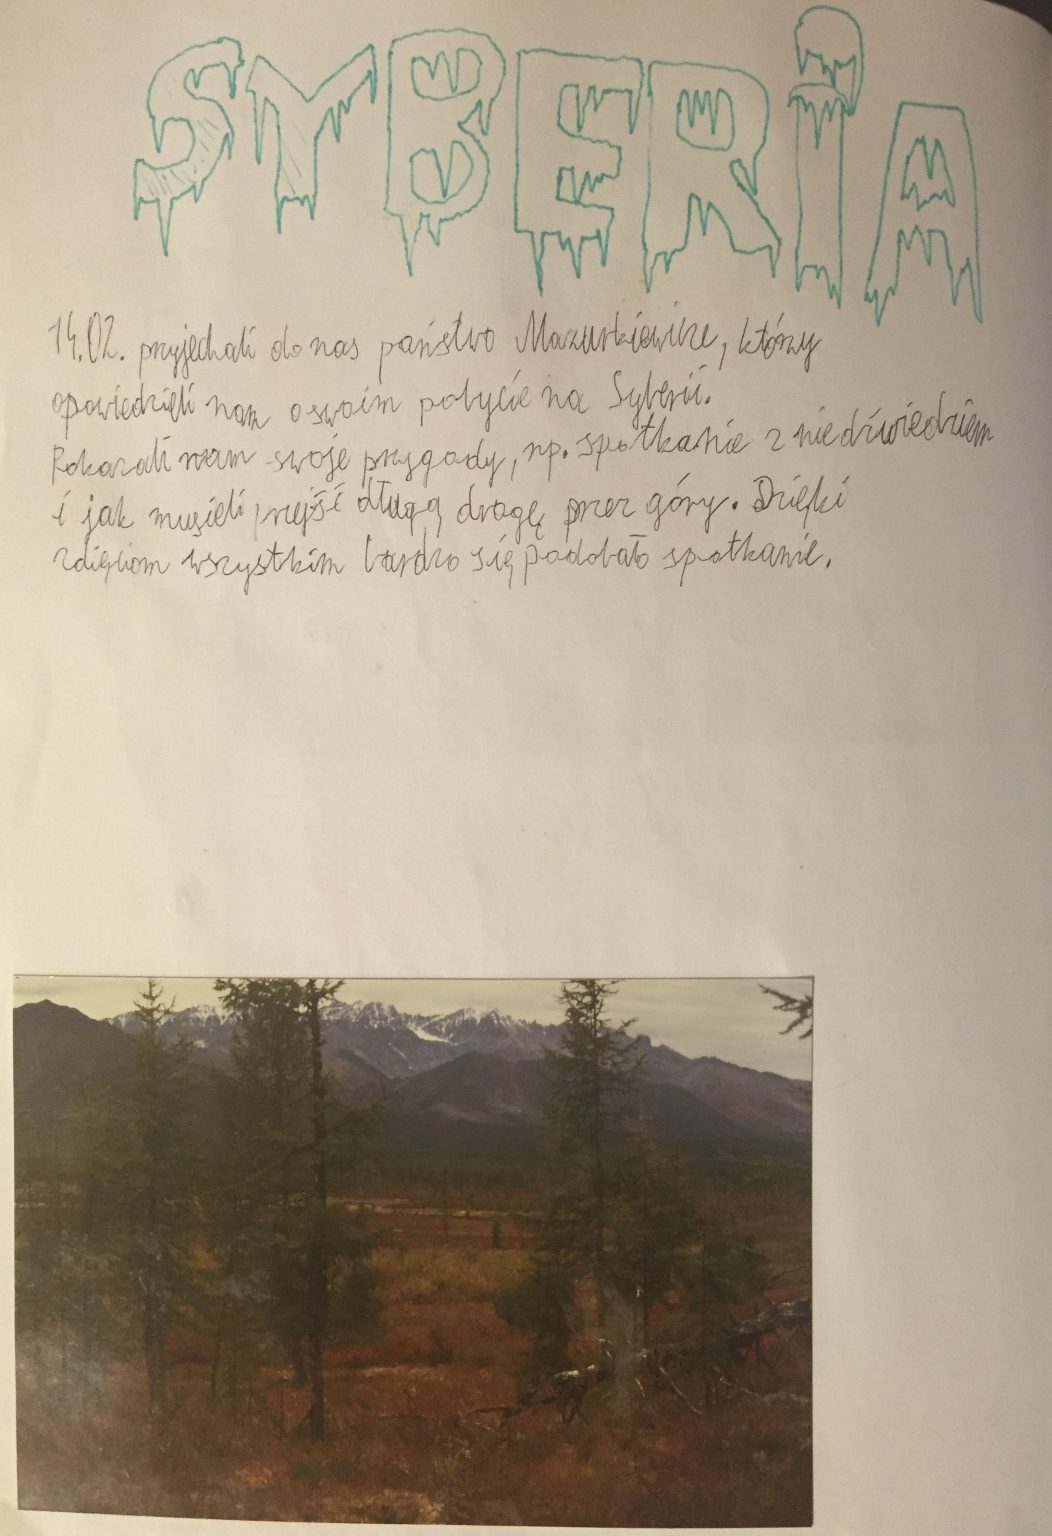 SYBERiA
14.02. przyjechali do nas państwo Mazurkiewicze, którzy
opowiedzieli nam o swoim pobycie na Syberii.
Pokazali nam swoje przygody, np. spotkanie z niedźwiedziem
i jak musieli przejść długą drogę przez góry. Dzięki
zdięciom wszystkim bardzo się podobało spotkanie.